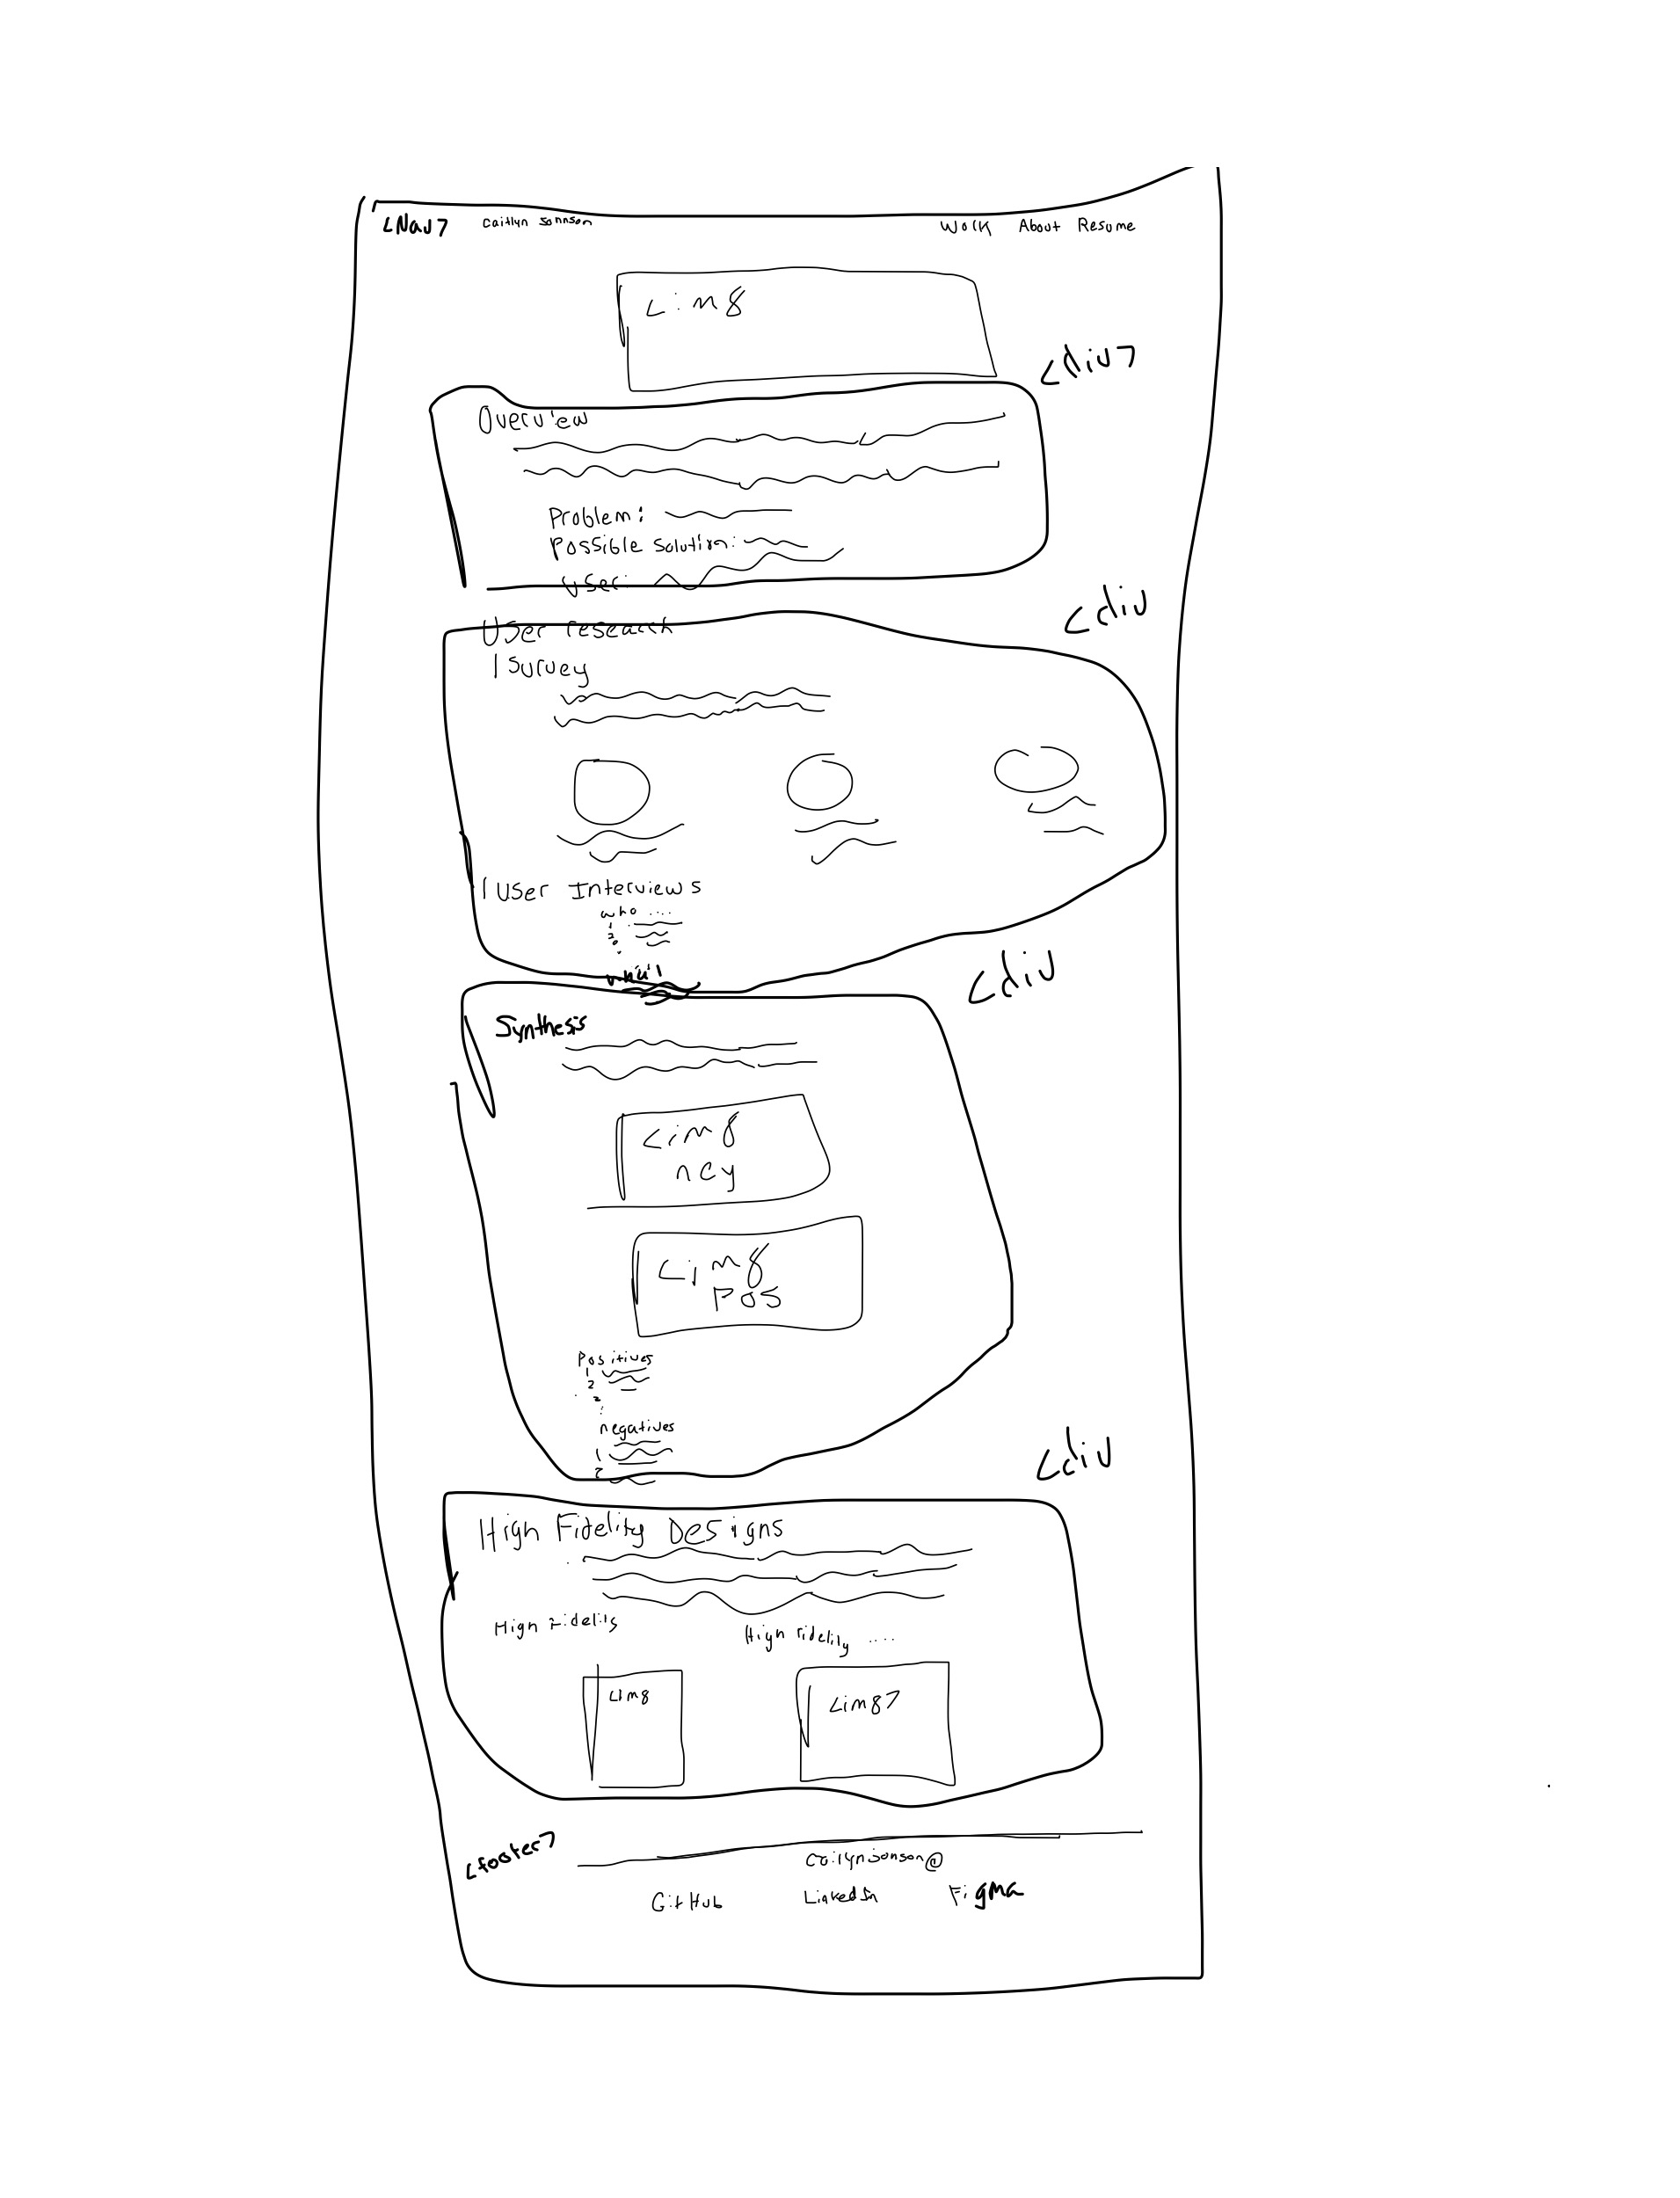 <Nav> Caitlyn Johnson Work About Resume
<img
<div>
Overview
Problem:
Possible solution:
User:
<div
User research
| Survey
| User Interviews
who ....
1
2
<div
Synthesis
<img
neg
<img
Pos
Positives
1
2
3
negatives
1
2
<div
High Fidelity Designs
High Fidelity
High fidelity ....
<img
<img>
<footer>
caitlynjonson@
GitHub LinkedIn Figma